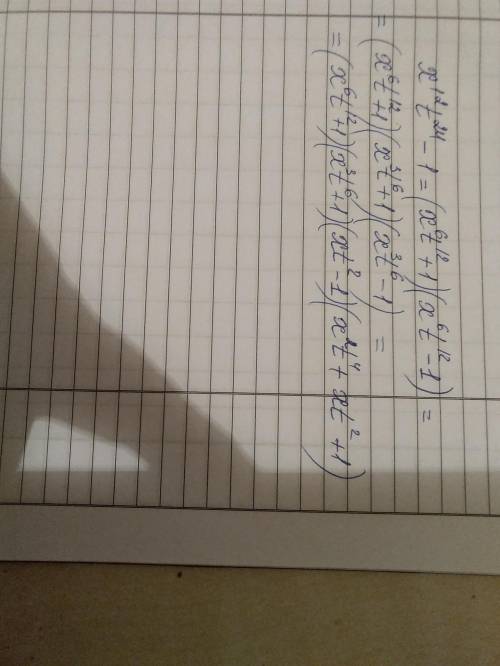 x¹²t²⁴ - 1 = (x⁶t¹² + 1)(x⁶t¹² - 1) =
= (x⁶t¹² + 1)(x³t⁶ + 1)(x³t⁶ - 1) =
= (x⁶t¹² + 1)(x³t⁶ + 1)(xt² - 1)(x²t⁴ + xt² + 1)